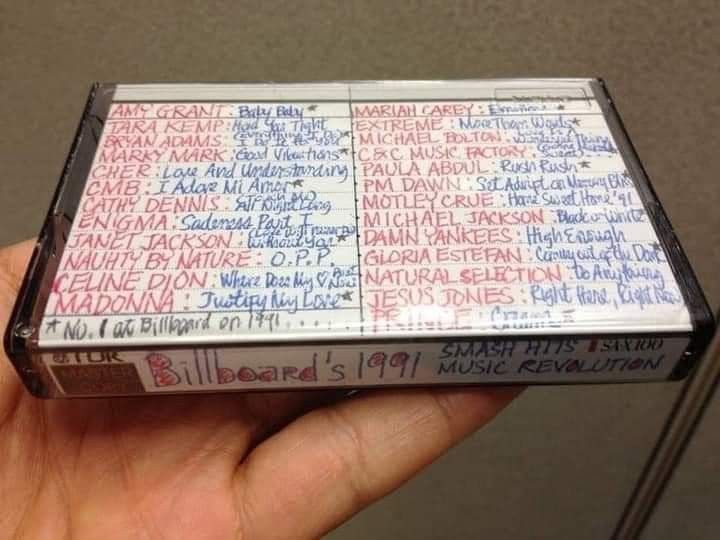 AMY GRANT : Baby Baby *
TARA KEMP : Hold You Tight
BRYAN ADAMS : (Everything I Do) I Do It For You *
MARKY MARK : Good Vibrations *
CHER : Love And Understanding
CMB : I Adore Mi Amor *
CATHY DENNIS : All Night Long
ENIGMA : Sadeness Part I
JANET JACKSON : Love Will Never Do Without You *
NAUHTY BY NATURE : O.P.P.
CELINE DION : Where Does My ♡ Beat Now
MADONNA : Justify My Love *
* No. 1 at Billboard on 1991....
MARIAH CAREY : Emotions *
EXTREME : More Than Words *
MICHAEL BOLTON : Love Is A Wonderful Thing
C&C MUSIC FACTORY : Gonna Make Sweat *
PAULA ABDUL : Rush Rush *
PM DAWN : Set Adrift on Memory Bliss
MOTLEY CRUE : Home Sweet Home '91
MICHAEL JACKSON : Black or White
DAMN YANKEES : High Enough
GLORIA ESTEFAN : Coming out of the Dark
NATURAL SELECTION : Do Anything
JESUS JONES : Right Here, Right Now
PRINCE : Cream *
TDK
MASTER
Billboard's 1991 SMASH HITS
MUSIC REVOLUTION
SA-X100